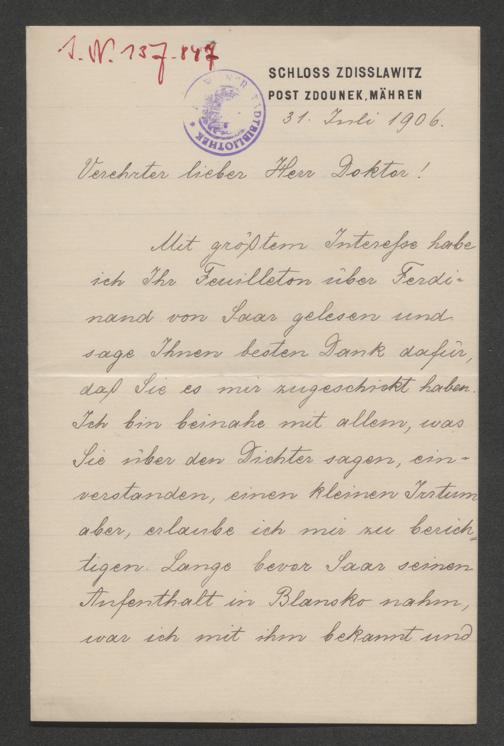 J. N. 137.847
SCHLOSS ZDISSLAWITZ
POST ZDOUNEK, MÄHREN
31. Juli 1906.
WIENER STADTBIBLIOTHEK
Verehrter lieber Herr Doktor!
Mit größtem Interesse habe
ich Ihr Feuilleton über Ferdi-
nand von Saar gelesen und
sage Ihnen besten Dank dafür,
daß Sie es mir zugeschickt haben.
Ich bin beinahe mit allem, was
Sie über den Dichter sagen, ein-
verstanden, einen kleinen Irrtum
aber, erlaube ich mir zu berich-
tigen. Lange bevor Saar seinen
Aufenthalt in Blansko nahm,
war ich mit ihm bekannt und